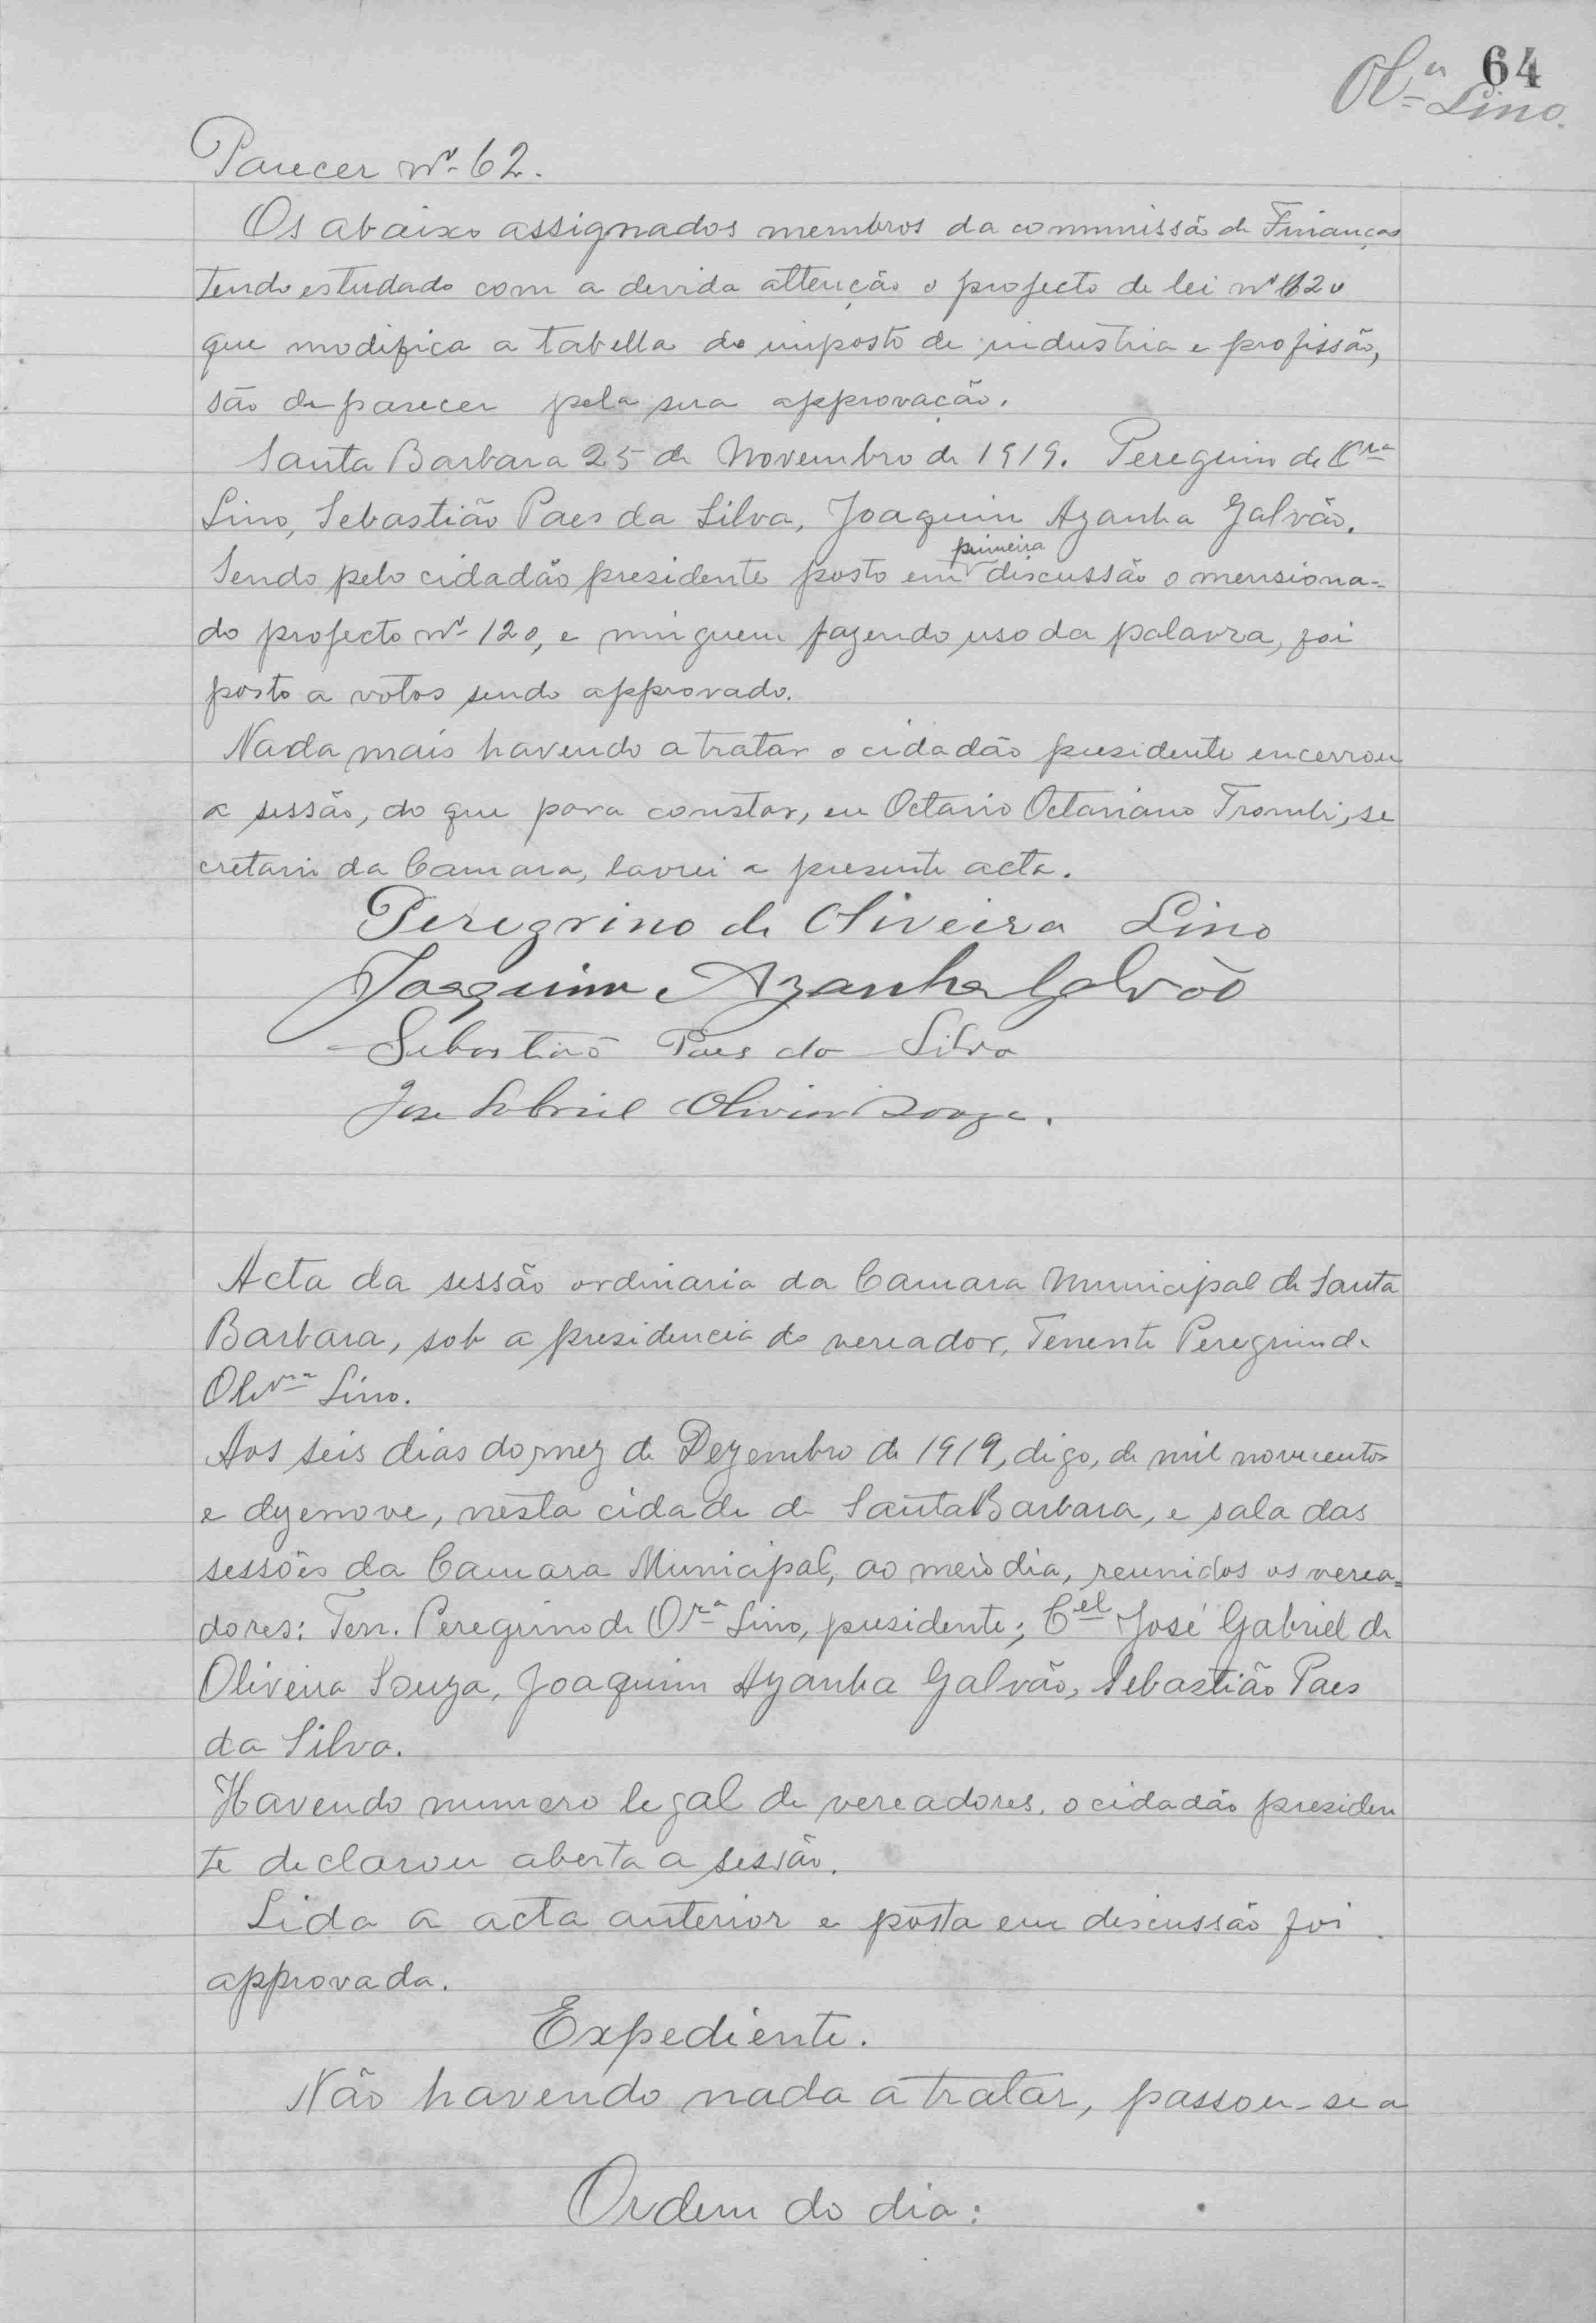 64
Ol.ra Lino.
Parecer nº 62.
Os abaixo assignados membros da commissão de Finanças
tendo estudado com a devida attenção o projecto de lei nº 120
que modifica a tabella do imposto de industria e profissão,
são de parecer pela sua approvação.
Santa Barbara 25 de Novembro de 1919. Peregrino de Ora
Lino, Sebastião Paes da Silva, Joaquim Azanha Galvão.
primeira
Sendo pelo cidadão presidente posto em discussão o mensiona-
do projecto nº 120, e ninguem fazendo uso da palavra, foi
posto a votos sendo approvado.
Nada mais havendo a tratar o cidadão presidente encerrou
a sessão, do que para constar, eu Octavio Octaviano Trombi, se
cretario da Camara, lavrei a presente acta.
Peregrino de Oliveira Lino
Joaquim Azanha Galvão
Sebastião Paes da Silva
Jose Gabriel Oliveira Souza.
Acta da sessão ordinaria da Camara Municipal de Santa
Barbara, sob a presidencia do vereador, Tenente Peregrino de
Olivra Lino.
Aos seis dias do mez de Dezembro de 1919, digo, de mil novecentos
e dezenove, nesta cidade de Santa Barbara, e sala das
sessões da Camara Municipal, ao meio dia, reunidos os verea=
dores: Ten. Peregrino de Ora Lino, presidente; Cel José Gabriel de
Oliveira Souza, Joaquim Azanha Galvão, Sebastião Paes
da Silva.
Havendo numero legal de vereadores, o cidadão presiden
te declarou aberta a sessão.
Lida a acta anterior e posta em discussão foi
approvada.
Expediente.
Não havendo nada a tratar, passou-se a
Ordem do dia: